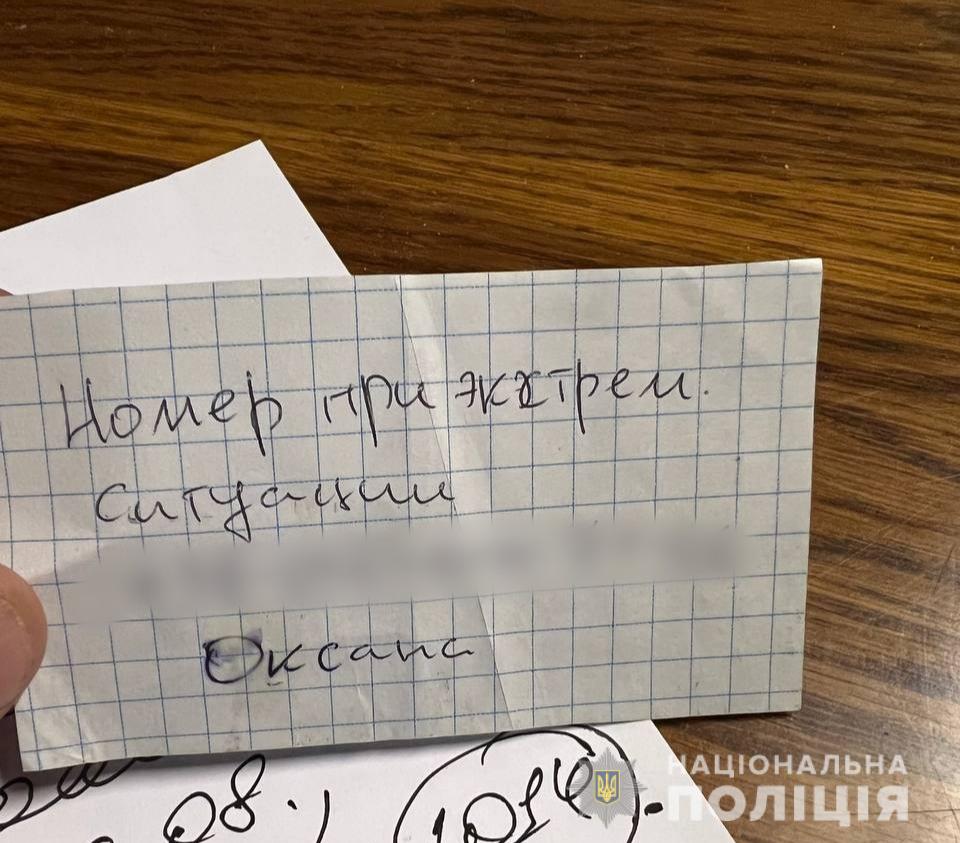 Номер при экстрем.
ситуации
Оксана
08.
1014
НАЦІОНАЛЬНА
ПОЛІЦІЯ